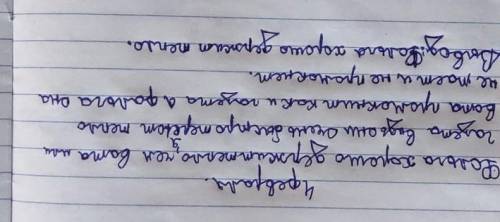 4 февраля.
Фольга хорошо держит тепло, чем вата или
газета ведь они очень быстро теряют тепло
вата промокнит как и газета А фольга она
не тает и не промокнет.
Вывод: Фольга хорошо держит тепло.